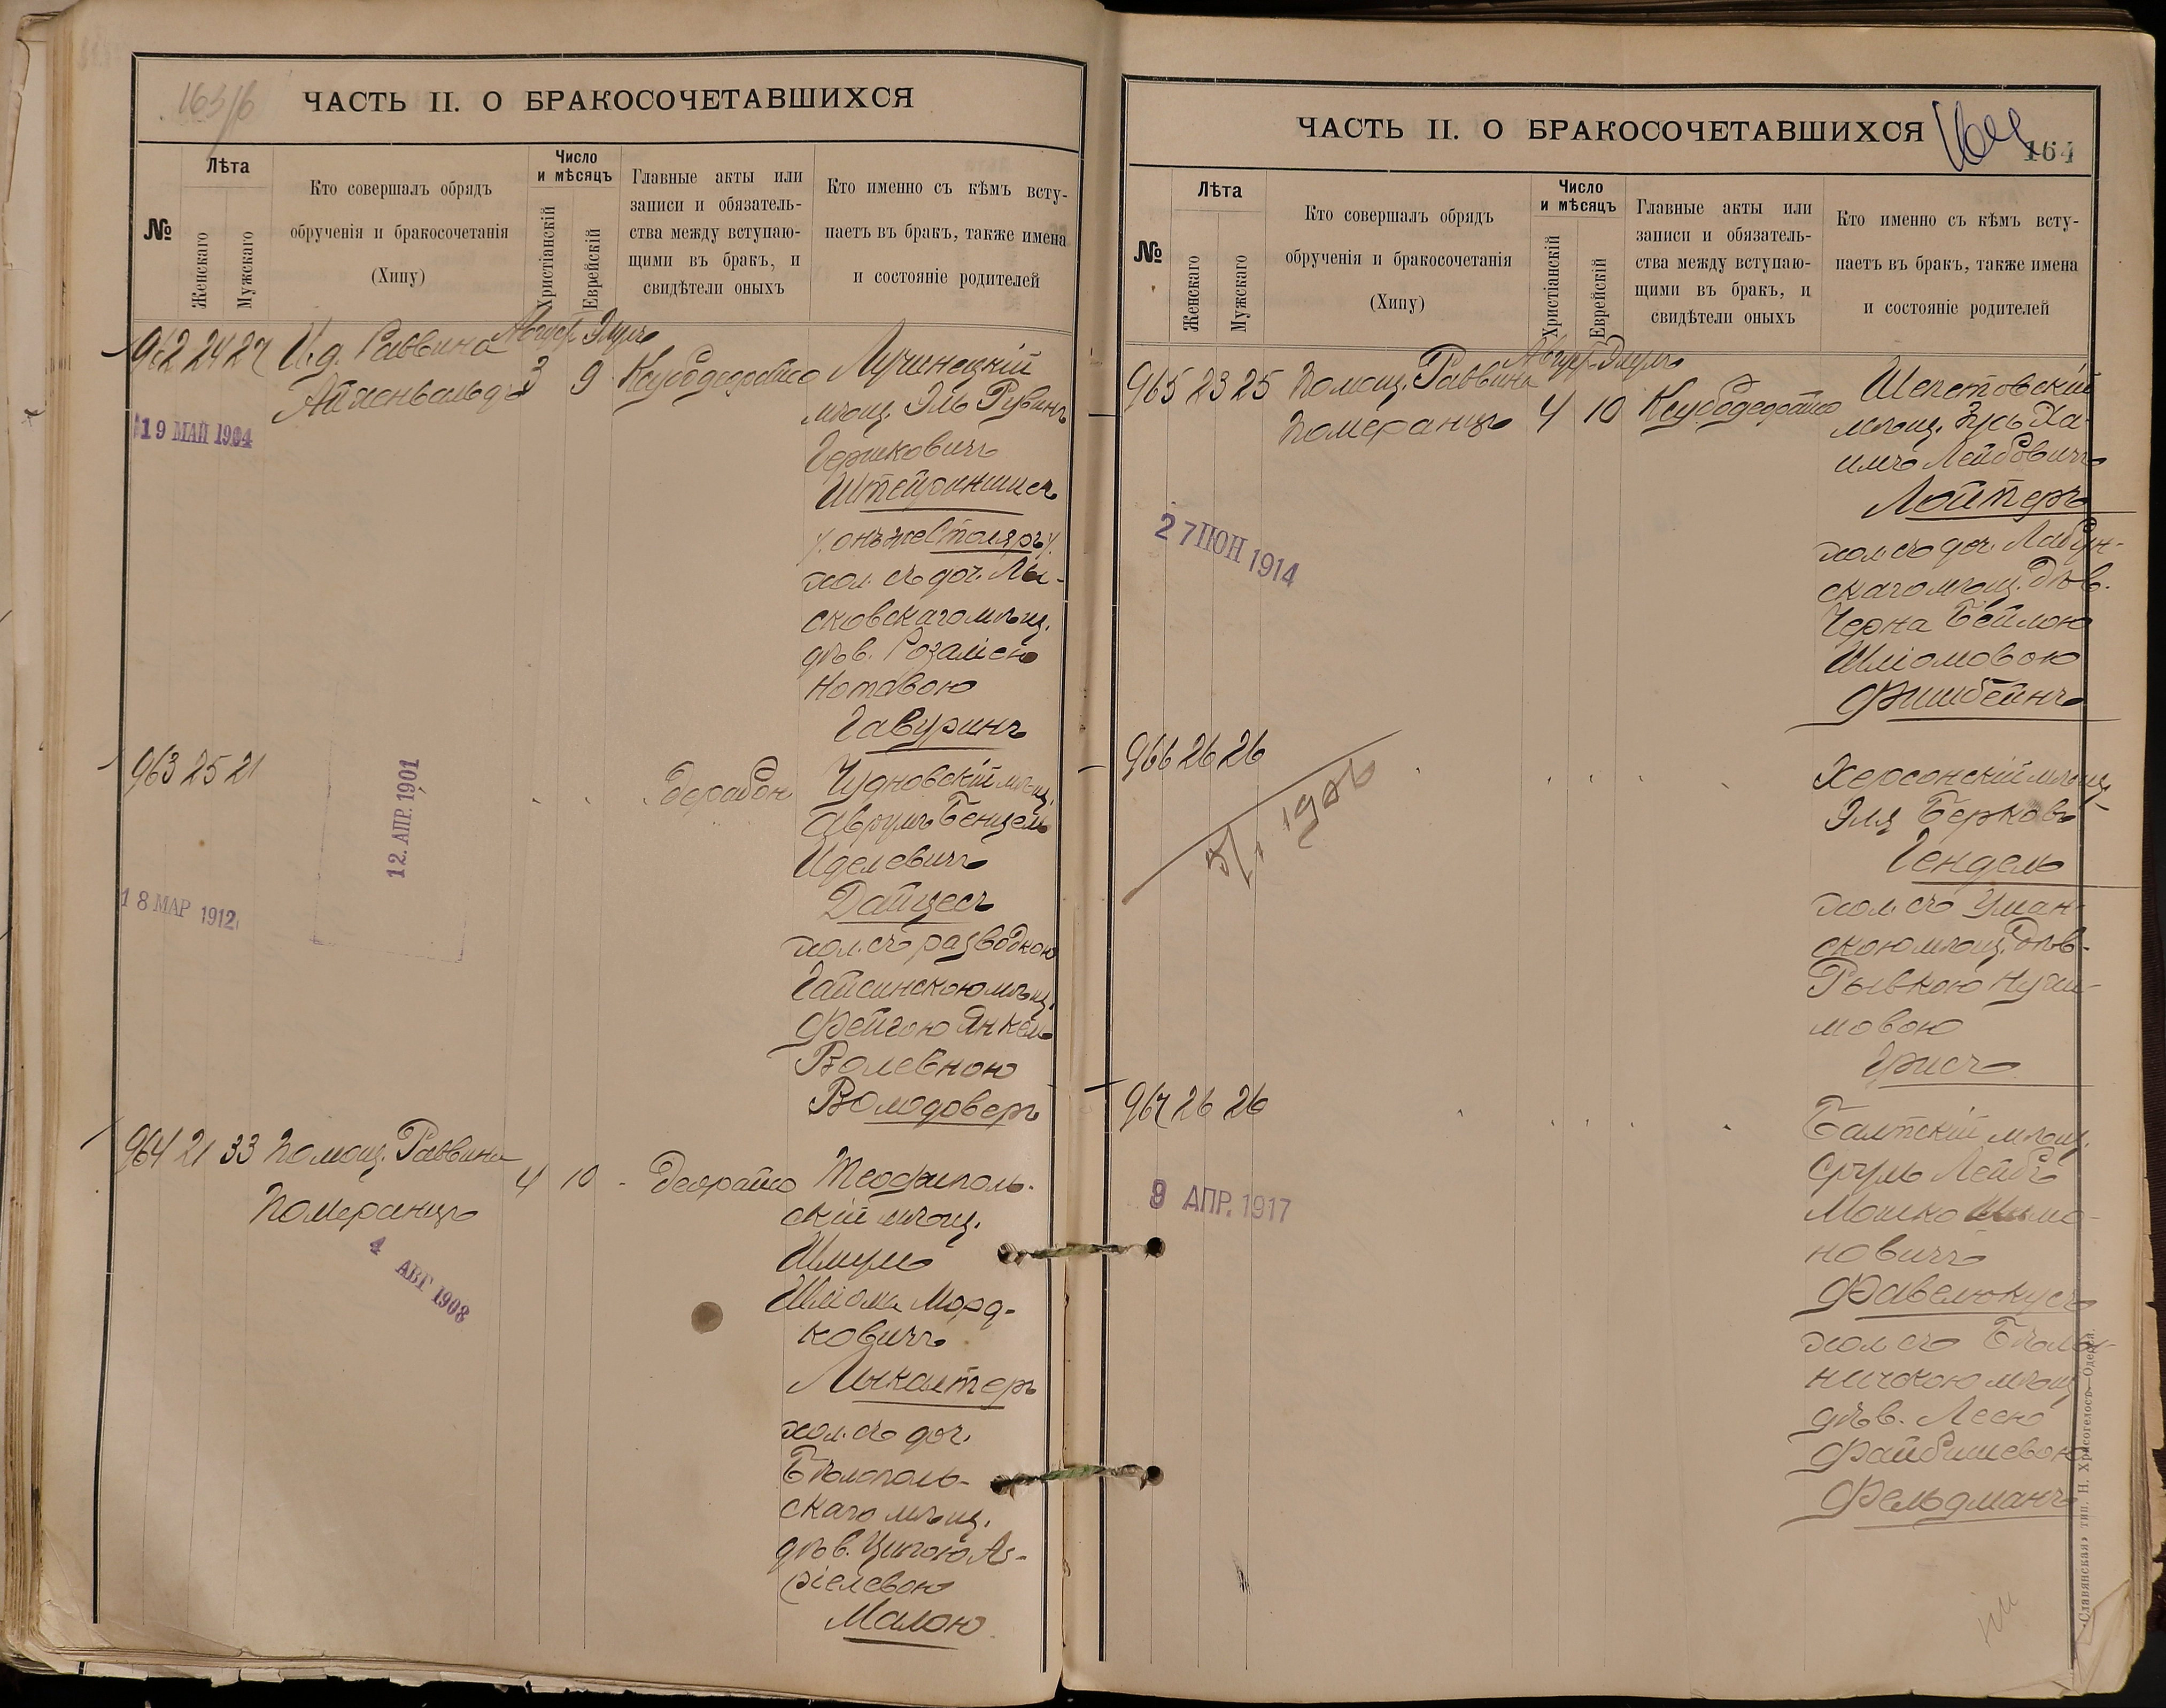 163/б
ЧАСТЬ II. О БРАКОСОЧЕТАВШИХСЯ
№
Лѣта
Женскаго
Мужскаго
Кто совершалъ обрядъ
обрученія и бракосочетанія
(Хипу)
Число
и мѣсяцъ
Христіанскій
Еврейскій
Главные акты или
записи и обязатель-
ства между вступаю-
щими въ бракъ, и
свидѣтели оныхъ
Кто именно съ кѣмъ всту-
паетъ въ бракъ, также имена
и состояніе родителей
962 24 27 И.д. Раввина Август. Элулъ
Айхенвальдъ 3 9 Ксубодеорайсо
Лучинецкій
мѣщ. Эль Рувинъ
Гершковичъ
Штейриншисъ
/. онъ же Столяръ/.
хол. съ доч. Лы-
сковскаго мѣщ.
дѣв. Розаліею
Нотовою
Гавуринъ
19 МАЙ 1904
963 25 21 Дерабон
Чудновскій мѣщ.
Аврумъ Бенцель
Иделевичъ
Дайцесъ
хол. съ разводкою
Гайсинскою мѣщ.
Фейгою Янкель
Волевною
Володоверъ
12. АПР. 1901
18 МАР 1912
964 21 33 Помощ. Раввина
Померанцъ 4 10 Деорайсо
Теофиполь-
скій мѣщ.
Шмуль
Шліома Морд-
ковичъ
Лыкалтеръ
хол. съ доч.
Бѣлополь-
скаго мѣщ.
дѣв. Ципою Аз-
ріелевою
Малою
4 АВГ 1908
ЧАСТЬ II. О БРАКОСОЧЕТАВШИХСЯ
164
164
№
Лѣта
Женскаго
Мужскаго
Кто совершалъ обрядъ
обрученія и бракосочетанія
(Хипу)
Число
и мѣсяцъ
Христіанскій
Еврейскій
Главные акты или
записи и обязатель-
ства между вступаю-
щими въ бракъ, и
свидѣтели оныхъ
Кто именно съ кѣмъ всту-
паетъ въ бракъ, также имена
и состояніе родителей
965 23 25 Помощ. Раввина Август. Элулъ
Померанцъ 4 10 Ксубодеорайсо
Шепетовскій
мѣщ. Зусь Ха-
имъ Лейбовичъ
Лойтеръ
хол. съ доч. Лабун-
скаго мѣщ. дѣв.
Черна Бейлою
Шліомовою
Фишбейнъ
27 ІЮН 1914
966 26 26
Херсонскій мѣщ.
Эля Берковъ
Гендель
хол. съ Уман-
скою мѣщ. дѣв.
Рывкою Нухи-
мовою
Грисъ
967 26 26
Балтскій мѣщ.
Сруль Лейбъ
Мошко Шимо-
новичъ
Фавелюкусъ
хол съ Бѣлы-
ничскою мѣщ
дѣв. Леею
Файбишевою
Фельдманъ
9 АПР. 1917
«Славянская» тип. Н. Хрисогелосъ—Одесса.